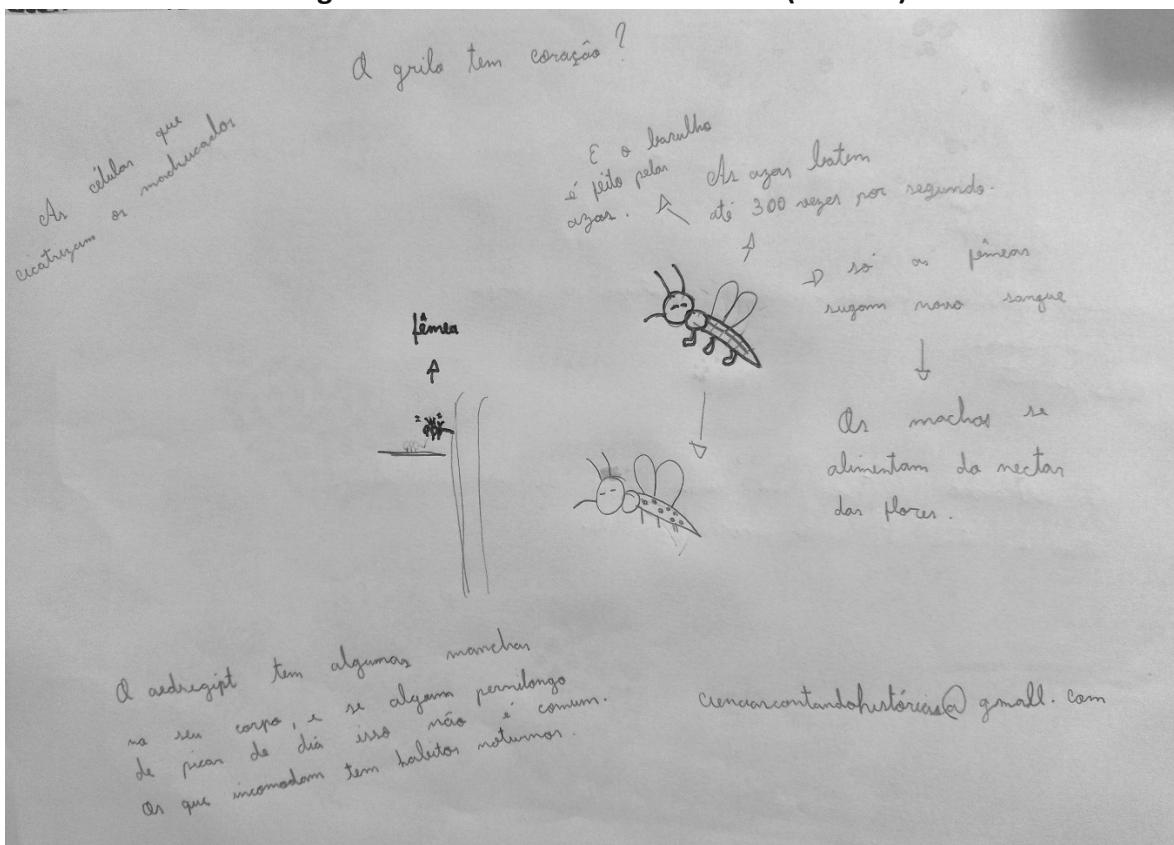 O grilo tem coração?
As célular que
cicatrizam os machucados
E o barulho
é feito pelas
azas.
As azas batem
até 300 vezes por segundo.
só as fêmeas
sugam noso sangue
Os machos se
alimentam do nectar
das flores.
fêmea
O aedregipt tem algumas manchas
no seu corpo, e se algum pernilongo
de picar de dia isso não é comum.
Os que incomodam tem habitos noturnos.
cienciascontandohistórias@gmall.com